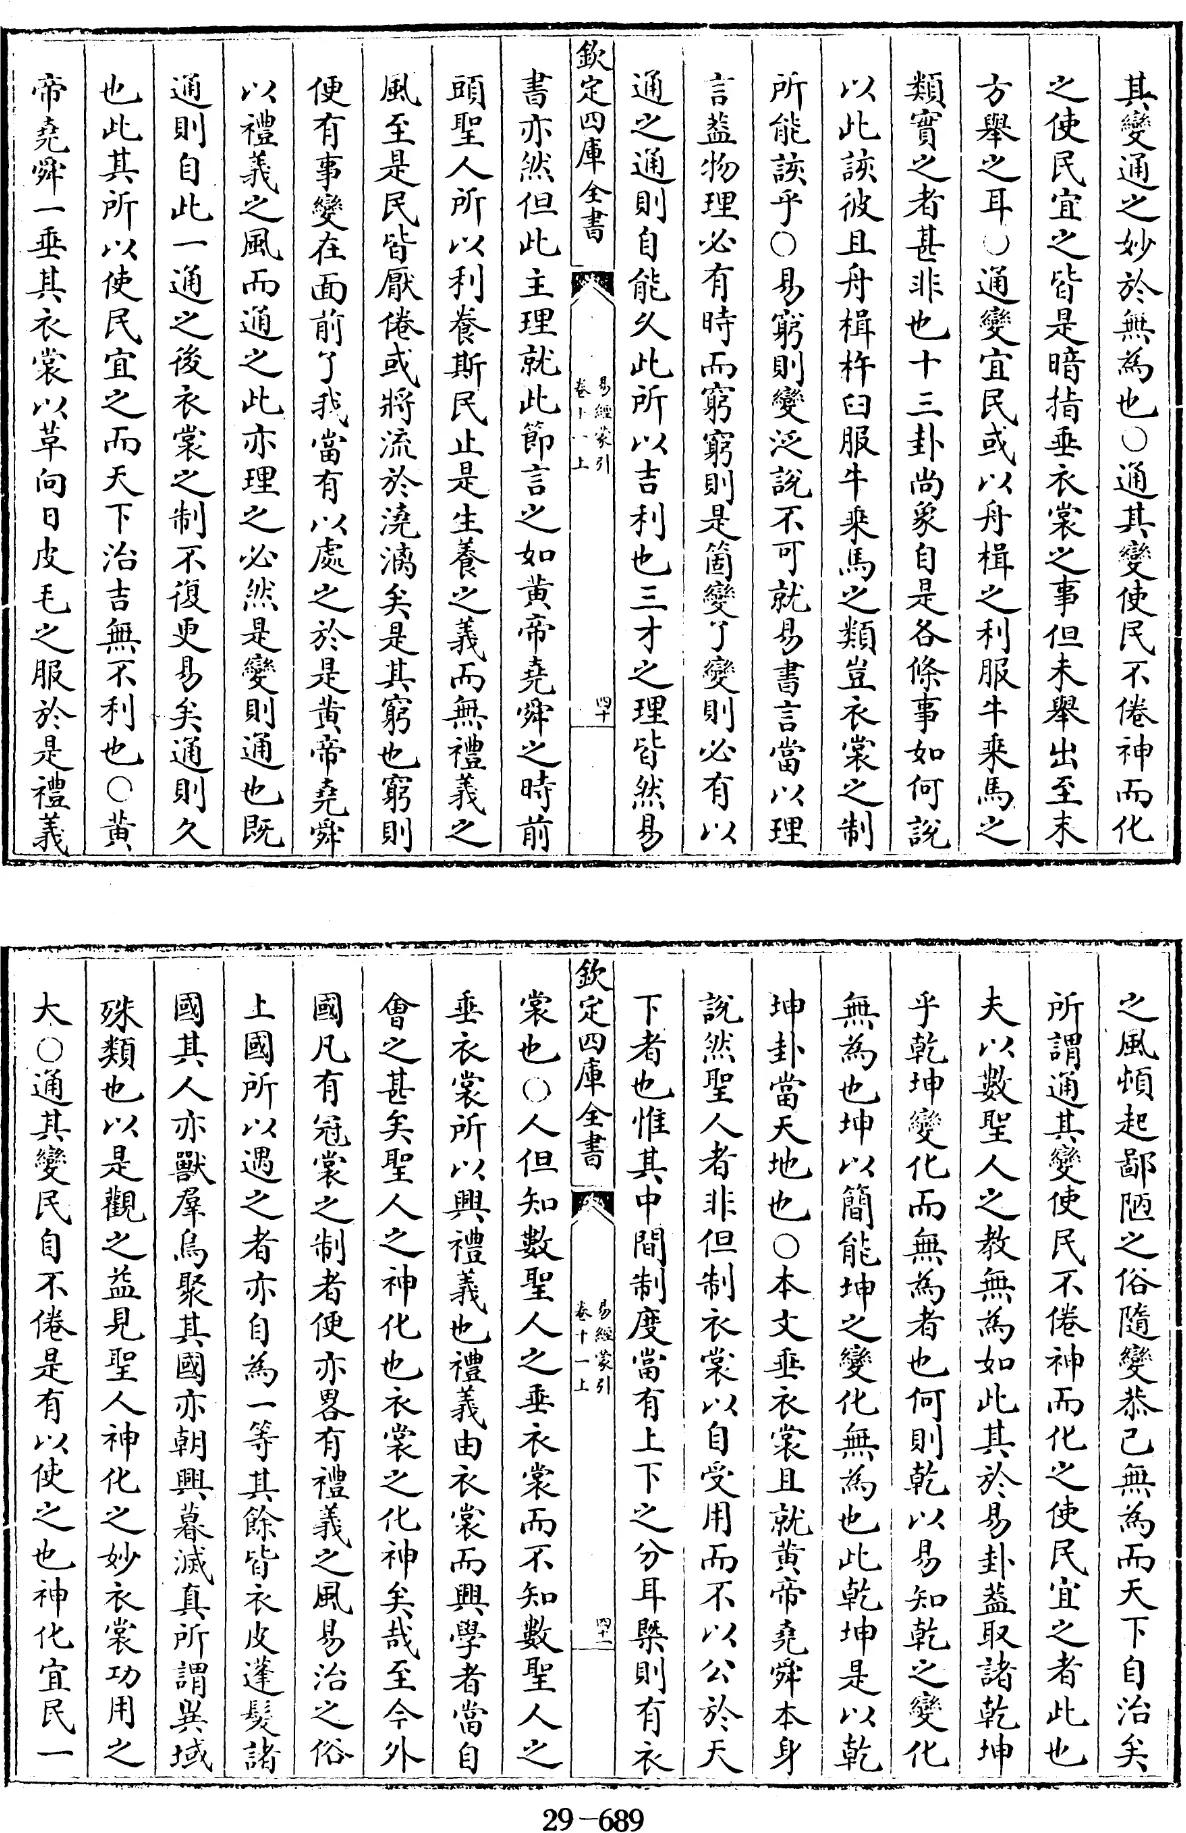 其變通之妙於無為也○通其變使民不倦神而化
之使民宜之皆是暗指垂衣裳之事但未舉出至末
方舉之耳○通變宜民或以舟楫之利服牛乘馬之
類實之者甚非也十三卦尚象自是各條事如何說
以此該彼且舟楫杵臼服牛乘馬之類豈衣裳之制
所能該乎○易窮則變泛說不可就易書言當以理
言葢物理必有時而窮窮則是箇變了變則必有以
通之通則自能久此所以吉利也三才之理皆然易
欽定四庫全書
易經蒙引
卷十一上
四十
書亦然但此主理就此節言之如黃帝堯舜之時前
頭聖人所以利養斯民止是生養之義而無禮義之
風至是民皆厭倦或將流於澆漓矣是其窮也窮則
便有事變在面前了我當有以處之於是黃帝堯舜
以禮義之風而通之此亦理之必然是變則通也既
通則自此一通之後衣裳之制不復更易矣通則久
也此其所以使民宜之而天下治吉無不利也○黃
帝堯舜一垂其衣裳以革向日皮毛之服於是禮義
之風頓起鄙陋之俗隨變恭己無為而天下自治矣
所謂通其變使民不倦神而化之使民宜之者此也
夫以數聖人之教無為如此其於易卦葢取諸乾坤
乎乾坤變化而無為者也何則乾以易知乾之變化
無為也坤以簡能坤之變化無為也此乾坤是以乾
坤卦當天地也○本文垂衣裳且就黃帝堯舜本身
說然聖人者非但制衣裳以自受用而不以公於天
下者也惟其中間制度當有上下之分耳槩則有衣
欽定四庫全書
易經蒙引
卷十一上
四十一
裳也○人但知數聖人之垂衣裳而不知數聖人之
垂衣裳所以興禮義也禮義由衣裳而興學者當自
會之甚矣聖人之神化也衣裳之化神矣哉至今外
國凡有冠裳之制者便亦畧有禮義之風易治之俗
上國所以遇之者亦自為一等其餘皆衣皮蓬髮諸
國其人亦獸羣鳥聚其國亦朝興暮滅真所謂異域
殊類也以是觀之益見聖人神化之妙衣裳功用之
大○通其變民自不倦是有以使之也神化宜民一
29-689